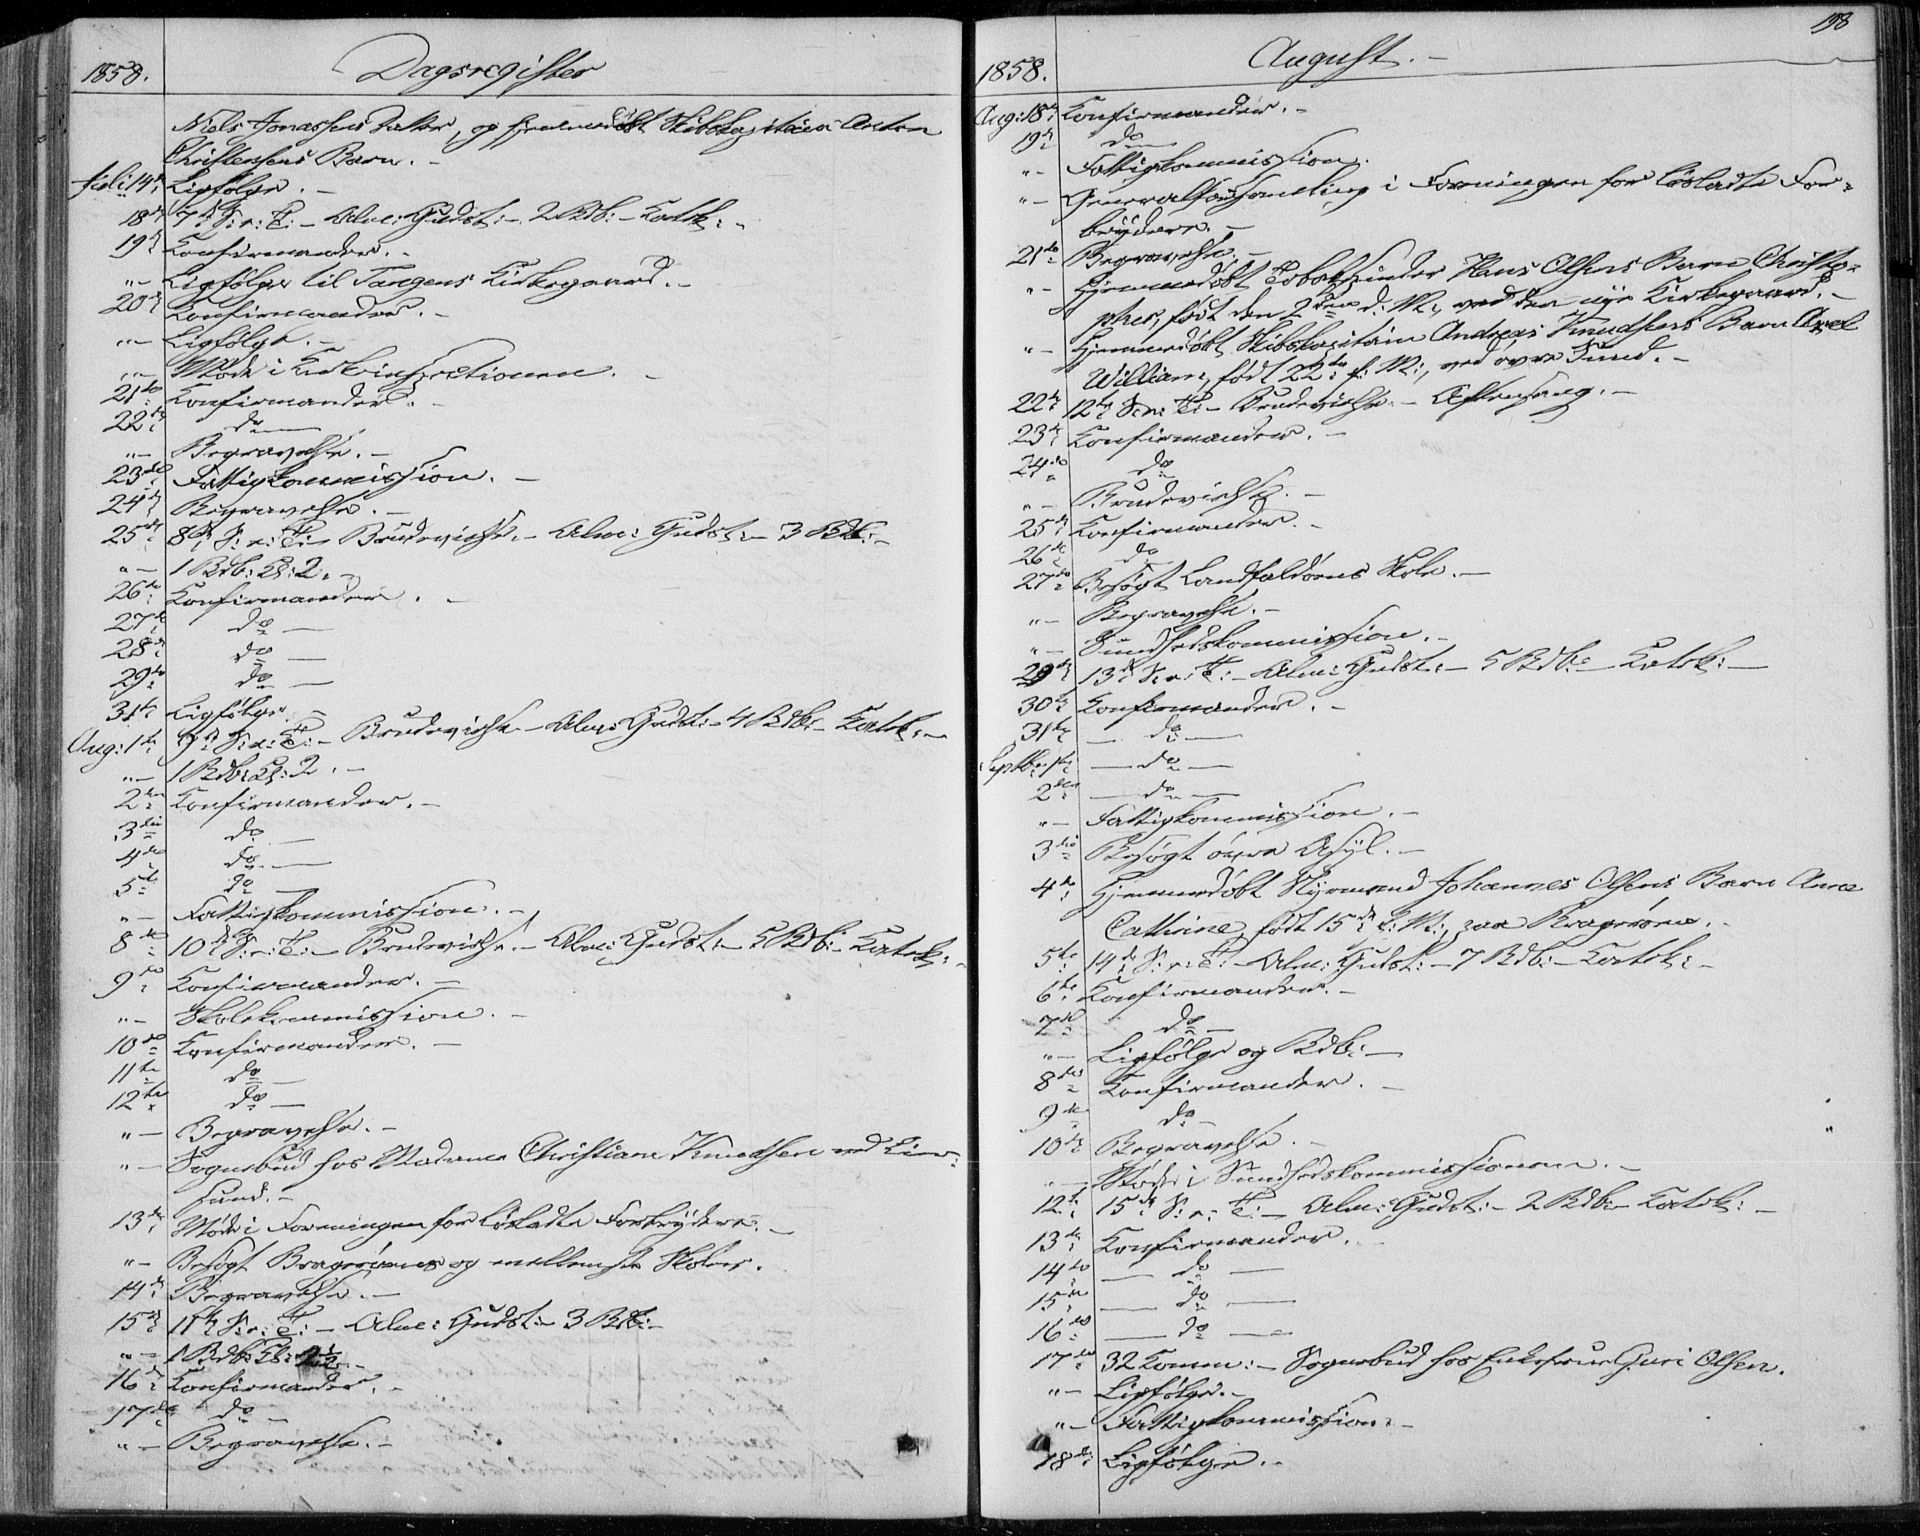 1858.
Dagsregister
Niels Jonassens Datter, og hjemmedöbt Skibskapitain Anton
Christensens Barn. -
Juli 14de Ligfölge. -
18de 7de S: e: T: - Alm: Gudst: - 2 Rdb: - Katek: -
19de Konfirmander. -
"- Ligfölge til Tangens Kirkegaard. -
20de Konfirmander. -
"- Ligfölge. -
"- Möde i Kirkeinspectionen. -
21de Konfirmander. -
22de do
"- Begravelse. -
23de Fattigkommission. -
24de Begravelse. -
25de 8de S: e: T: - Brudevielse. - Alm: Gudst: - 3 Rdb: -
"- 1 Rdb: Kl: 2. -
26de Konfirmander. -
27de do -
28de do -
29de do -
31te Ligfölge. -
Aug: 1te 9de S: e: T: - Brudevielse - Alm: Gudst: - 4 Rdb: - Katek: -
"- 1 Rdb: Kl: 2. -
2den Konfirmander. -
3die do -
4de do -
5te do -
"- Fattigkommission. -
8de 10de S: e: T: - Brudevielse. - Alm: Gudst: - 5 Rdb: - Katek: -
9de Konfirmander. -
"- Skolekommission. -
10de Konfirmander. -
11te do -
12te do -
"- Begravelse. -
"- Sognebud hos Madame Christiane Knudsen ved
sund. -
13de Möde i Foreningen for lösladte Forbrydere. -
"- Besögt Bragernes og mellemste Skoler.
14de Begravelse. -
15de 11te S: e: T: - Alm: Gudst: - 3 Rdb: -
"- 1 Rdb: Kl: 2 1/2. -
16de Konfirmander. -
17de do -
"- Begravelse. -
198
1858.
August. -
Aug: 18de Konfirmander. -
19de do
"- Fattigkommission.
"- Generalforsamling i Foreningen for lösladte For-
brydere. -
21de Begravelse. -
"- Hjemmedöbt Tobakspinder Hans Olsens Barn Christo-
pher, födt den 2den d: M:, ved den nye Kirkegaard. -
"- Hjemmedöbt Skibskapitain Andreas Knudsens Barn Axel
William, födt 22de f: M:, ved övre Sund. -
22de 12te S: e: T: - Brudevielse. - Aftensang. -
23de Konfirmander. -
24de do
"- Brudevielse. -
25de Konfirmander. -
26de do
27de Besögt Landfaldöens Skole. -
"- Begravelse. -
"- Sundhedskommission. -
29de 13de S: e: T: - Alm: Gudst: - 5 Rdb: - Katek: -
30te Konfirmander. -
31te - do -
Septb: 1te - do -
2den - do -
"- Fattigkommission. -
3die Besögt övre Asyl. -
4de Hjemmedöbt Styrmand Johannes Olsens Barn Anna
Cathrine, födt 15de f: M:, paa Bragerøen. -
5te 14de S: e: T: - Alm: Gudst: - 7 Rdb: - Katek: -
6te Konfirmander. -
7de do -
"- Ligfölge og Rdb: -
8de Konfirmander. -
9de do -
10de Begravelse. -
"- Möde i Sundhedskommissionen. -
12te 15de S: e: T: - Alm: Gudst: - 2 Rdb: - Katek: -
13de Konfirmander.
14de - do -
15de - do -
16de - do -
17de 32 Komm: - Sognebud hos Enkefrue Guri Olsen.
"- Ligfölge. -
"- Fattigkommission. -
18de Ligfölge. -